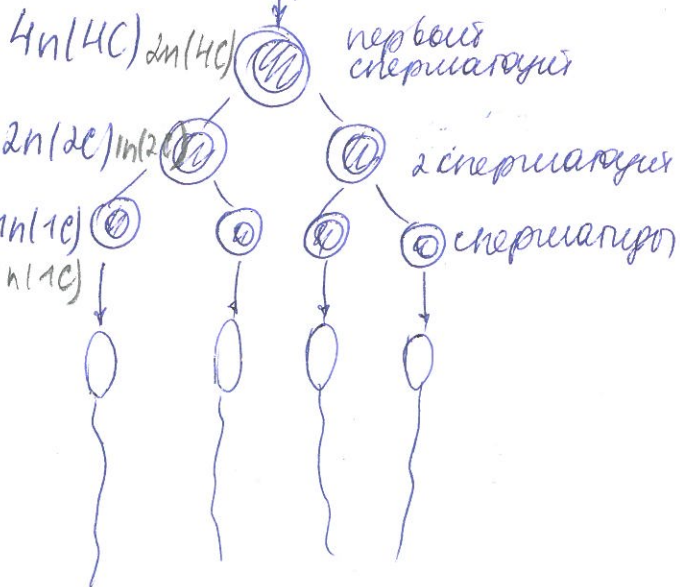 4n(4C) 2n(4C) первый
сперматоцит
2n(2C) 1n(2C) 2 сперматоцит
1n(1C) сперматиды
n(1C)